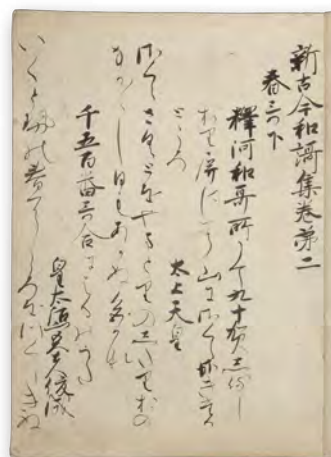 新古今和謌集巻第二
春哥下
釋阿和哥所にて九十賀し侍し
おり屏風に山にさくらさきたる
ところ
太上天皇
さくらさくとを山とりのしたりおの
なかなかし日もあかぬ色かな
千五百番哥合に
皇太后宮大夫俊成
いくとせの春に心をつくしきぬ